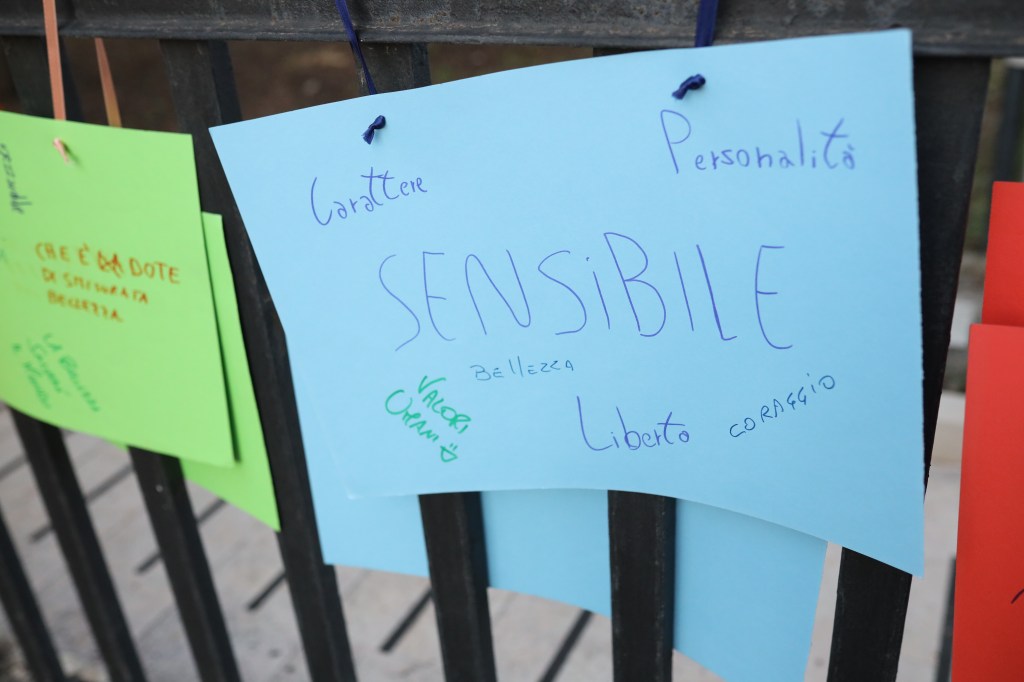 CHE È LA DOTE
DI SMISURATA
BELLEZZA
Carattere
Personalità
SENSiBILE
BEllEZZA
VALORI
UMANI
Libertà
CORAGGIO